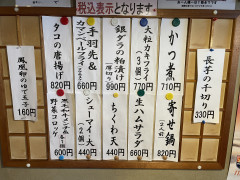 税込表示となります。
長芋の千切り
330円
かつ煮
710円
大粒カキフライ
(3個)
770円
銀ダラの粕漬け
990円
手羽先&
カマンベールフライ
(2個)
660円
タコの唐揚げ
820円
鳳凰卵のゆで玉子
160円
寄せ鍋
820円
生ハムサラダ
660円
ちくわ天
440円
シューマイ
(2個)
440円
野菜コロッケ